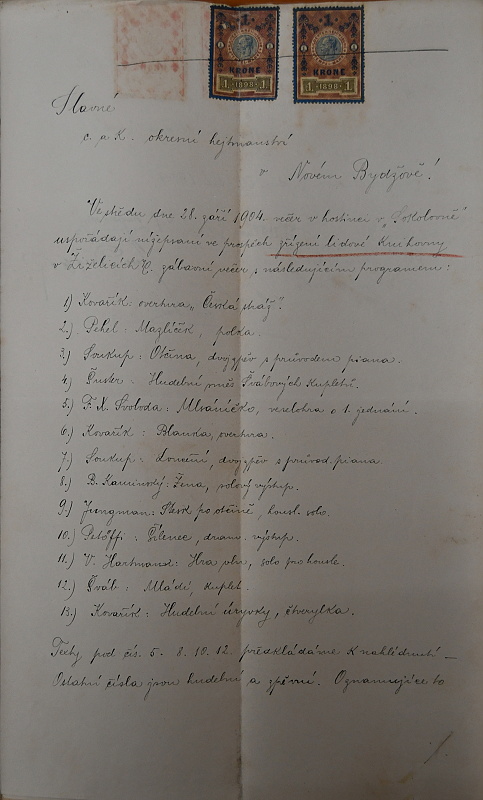 1 KRONE 1 1898 1
1 KRONE 1 1898 1
Slavné
c. a k. okresní hejtmanství
v Novém Bydžově!
Ve středu dne 28. září 1904 večer v hostinci v „Sokolovně“
uspořádají nížepsaní ve prospěch zřízení lidové knihovny
v Žiželicích n/C. zábavní večer s následujícím programem:
1) Kovařík: overtura „Česká stráž“.
2.) Pehel: Mazlíček, polka.
3.) Soukup: Otčina, dvojzpěv s průvodem piana.
4.) Šuster: Hudební směs Švábových kupletů.
5.) F. X. Svoboda: Mlsáníčko, veselohra o 1. jednání.
6.) Kovařík: Blanka, overtura.
7.) Soukup: Loučení, dvojzpěv s průvod. piana.
8.) B. Kaminský: Žena, solový výstup.
9.) Jungman: Stesk po otčině, housl. solo.
10.) Petöffi: Šílenec, dram. výstup.
11.) V. Hartmand: Hra vln, solo pro housle.
12.) Šváb: Mládí, kuplet.
13.) Kovařík: Hudební úryvky, čtverylka.
Texty pod čís. 5. 8. 10. 12. předkládáme k nahlédnutí —
Ostatní čísla jsou hudební a zpěvní. Oznamujíce to